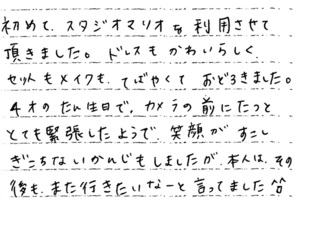 初めて、スタジオマリオを利用させて
頂きました。ドレスもかわいらしく、
セットもメイクも、てばやくておどろきました。
4才のたん生日で、カメラの前にたつと
とても緊張したようで、笑顔がすこし
ぎこちないかんじもしましたが、本人は、その
後も、また行きたいなーと言ってました